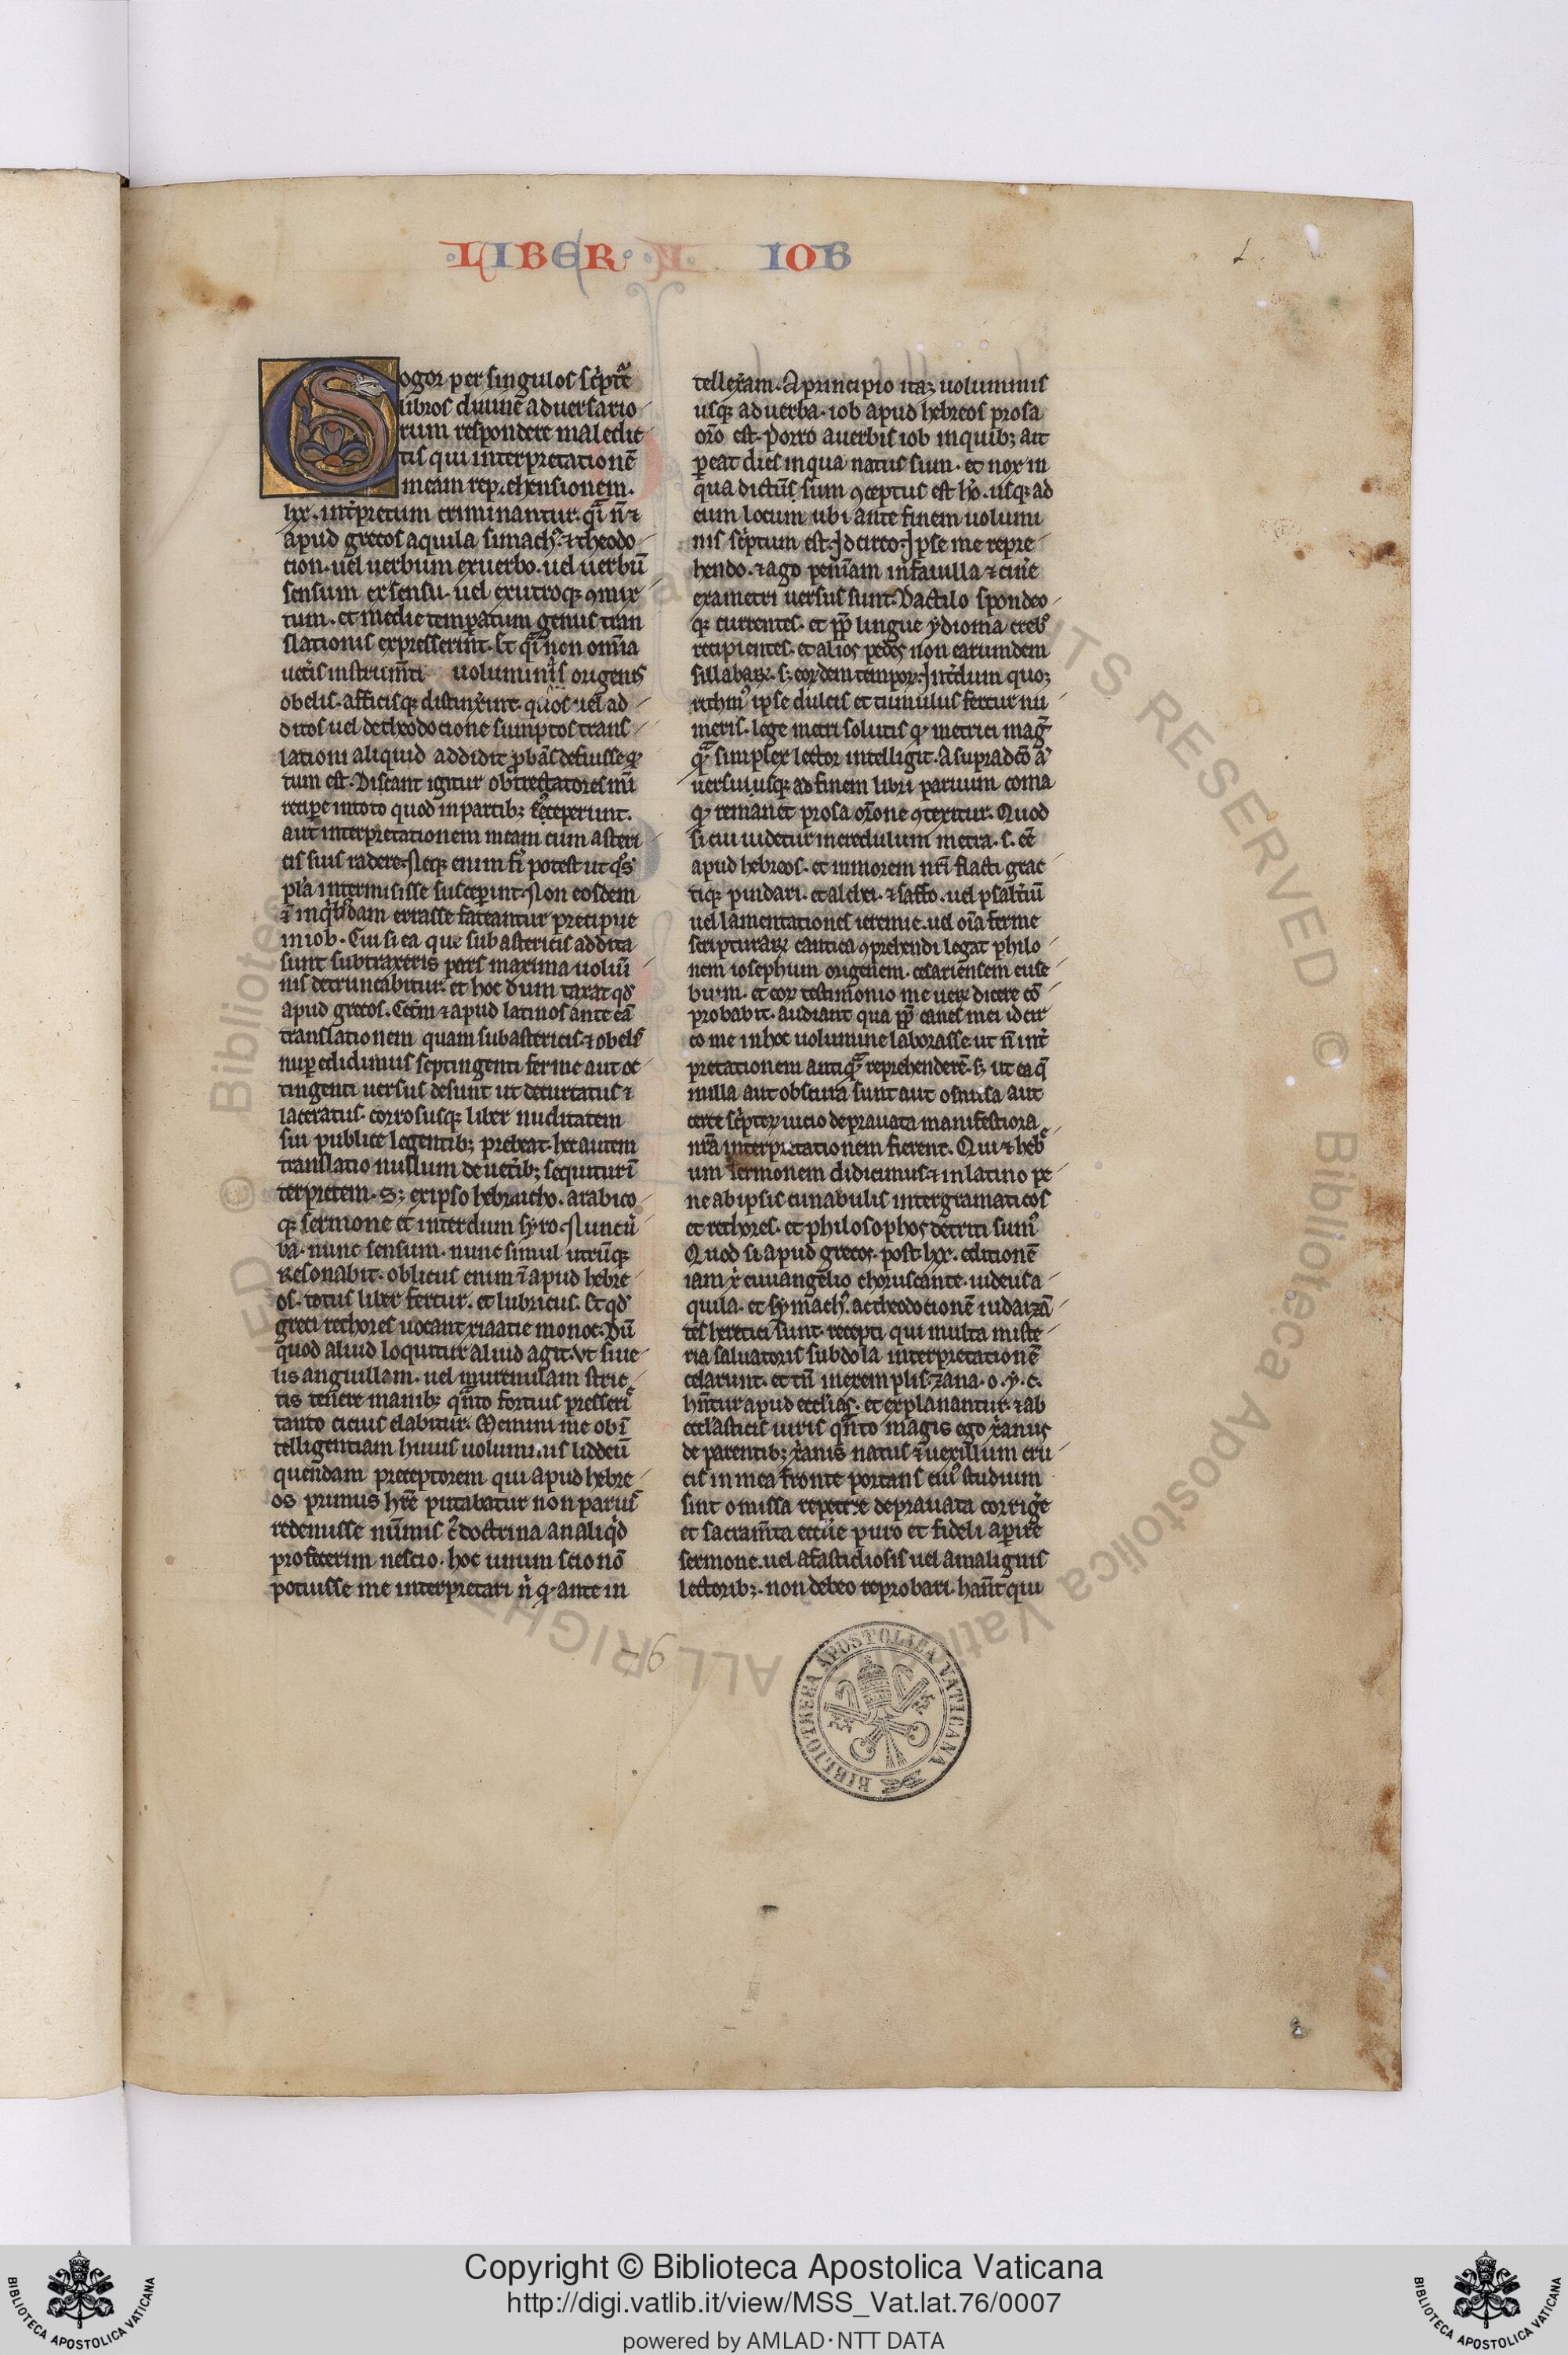 LIBER IOB
Cogor per singulos sc̄ptr̄e
libros diuine aduersario
rum respondere maledic
tis qui interpretationē
meam reprehensionem.
lxx. int̾pretum criminantur. q̄i n̄ ⁊
apud grecos aquila simachꝰ. ⁊ theodo
cion. uel uerbum exuerbo. uel uerbū
sensum exsensu. uel exutroqꝫ ꝯmix
tum. et medie temperatum genus tran
slationis expresserint. Et q̄i non omīa
uet̾is instrum̄ti uoluminis origenis
obelis. afficisqꝫ distinx̾int. quos uel ad
ditos uel detheodocione sumptos trans
lationi aliquid addidit ꝓbās defuisse qͦ
tum est. Discant igitur obtrectatores mī
recipe intoto quod inpartibꝫ susceperunt.
aut interpretationem meam cum asteri
cis suis radere. Neqꝫ enim fi̾ potest ut qͦs
pl̾a intermisisse suscep̄int. Non eosdem
ī inqͥbꝫdam errasse fateantur precipue
iniob. Cui si ea que sub astericis addita
sunt subtraxeris pars maxima uolum̄i
nis detruncabitur. et hoc dum taxat qd̾
apud grecos. Cet̾m ⁊ apud latinos ante eā
translationem quam subastericis ⁊ obelis
nup̱ edidimus septingenti ferme aut oc
tingenti uersus desunt ut decurtatus ⁊
laceratus. corrosusqꝫ liber nuditatem
sui publice legentibꝫ prebeat. hec autem
translatio nullum de uet̾ibꝫ sequitur ī
terpretem. Sꝫ exipso hebraicho. arabico
qꝫ sermone et interdum syro. Nunc u̾
ba. nunc sensum. nunc simul utrūqꝫ
Resonabit. oblicus enim ī apud hebre
os. totus liber fertur. et lubricus. Et qd̾
greci rethores uocant xiaatie monoc. Dū
quod aliud loquitur aliud agit. Vt si ue
lis anguillam. uel murenulam stric
tis tenere manibꝫ qn̄to fortius presseris
tanto cicius elabitur. Memini me ob ī
telligentiam huius uoluminis liddeū
quendam preceptorem qui apud hebre
os primus hr̄e putabatur non paruis
redemisse nūmis cͥ doctrina an aliqͥd
profecerim nescio. hoc unum scio nō
potuisse me interpretari n̾ qͦ ante in
tellex̾am. A principio itaqꝫ uoluminis
usqꝫ ad uerba. iob apud hebreos prosa
or̄o est. Porro a uerbis iob inquibꝫ ait
ꝑeat dies inqua natus sum. et nox in
qua dictum sum ꝯceptus est hō. usqꝫ ad
eum locum ubi ante finem uolumi
nis sc̄ptum est. Idcirco. Ipse me repre
hendo. ⁊ ago penīam infauilla ⁊ cin̾e
exametri uersus sunt. Dactilo spondeo
qꝫ currentes. et pp̄ lingue ydioma crebꝰ
recipientes. et alios pedes non earumdem
sillabaꝝ. sꝫ eorꝫdem temporꝫ. Int̾dum quoqꝫ
rithmꝰ ipse dulcis et tinnulus fertur nu
meris. lege metri solutis qͦ metrici magꝭ
qͣ simplex lector intelligit. A supradc̄o a
uersu usqꝫ ad finem libri paruum coma
qͦ remanet prosa or̄one ꝯtexitur. Quod
si cui uidetur incredulum metra. s. eē
apud hebreos. et inmorem nr̄i flacti grec
tiqꝫ pindari. et alchei. ⁊ saffo. uel psalt̾iū
uel lamentationes ieremie. uel oīa ferme
scripturaꝝ cantica ꝯprehendi legat philo
nem iosephum origenem. cesariensem euse
bium. et eoꝝ testimonio me ueꝝ dicere cō
probabit. audiant qua pp̄ canes mei idcir
co me inhoc uolumine laborasse ut n̄ int̾
pretationem antiqͣ reprehenderē. sꝫ ut ea q̄
inilla aut obscura sunt aut omissa aut
certe sc̄ptoꝝ uicio deprauata manifestiora
nr̄a interpretationem fierent. Qui ⁊ hebͤ
um sermonem didicimus ⁊ inlatino pe
ne ab ipsis cunabulis inter gramaticos
et rethores. et philosophos detriti sumꝰ
Quod si apud grecos. post lxx. editionē
iam xͥ euuangelio choruscante. iudeus a
quila. et symachꝰ. ac theodocionē iudaizā
tes heretici sunt. recepti qui multa miste
ria saluatoris subdola interpretationē
celarunt. et tn̄ inexemplis. zana. o. y. c.
hn̄tur apud eccl̾ias. et explanantur. ⁊ ab
eccl̾asticis uiris qn̄to magis ego x̾anus
de parentibꝫ x̾anis natus ⁊ uexillum cru
cis in mea fronte portans cuiꝰ studium
sint omissa repetere deprauata corrig̾e
et sacram̄ta eccl̾ie puro et fideli aperire
sermone. uel afastidiosis uel amalignis
lectoribꝫ. non debeo reprobari. han̄t qui
BIBLIOTHECA APOSTOLICA VATICANA
Copyright © Biblioteca Apostolica Vaticana
http://digi.vatlib.it/view/MSS_Vat.lat.76/0007
powered by AMLAD·NTT DATA